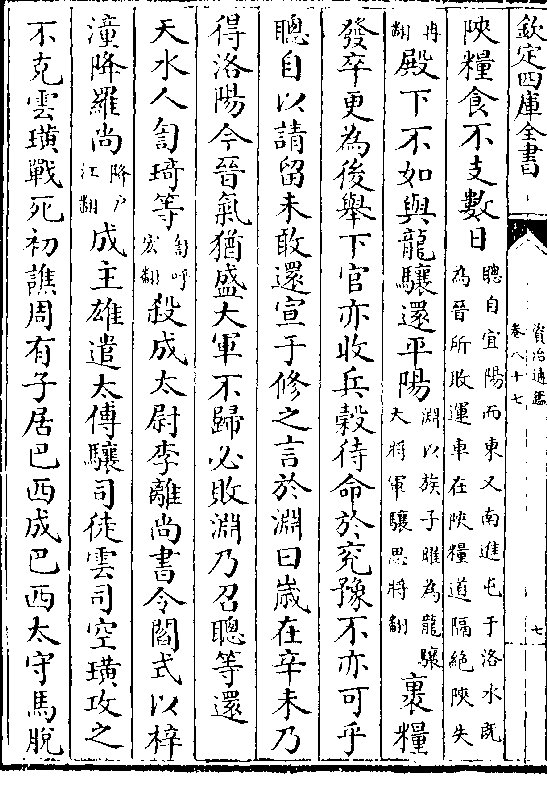 欽定四庫全書
資治通鑑
卷八十七
七
陜糧食不支數日聰自宜陽而東又南進屯于洛水既
為晉所敗運車在陜糧道隔絶陜失
冉
翻殿下不如與龍驤還平陽淵以族子曜為龍驤
大將軍驤思將翻裹糧
發卒更為後舉下官亦收兵穀待命於兖豫不亦可乎
聰自以請留未敢還宣于修之言於淵曰歳在辛未乃
得洛陽今晉氣猶盛大軍不歸必敗淵乃召聰等還
天水人訇琦等訇呼
宏翻殺成太尉李離尚書令閻式以梓
潼降羅尚降户
江翻成主雄遣太傅驤司徒雲司空璜攻之
不克雲璜戰死初譙周有子居巴西成巴西太守馬脫